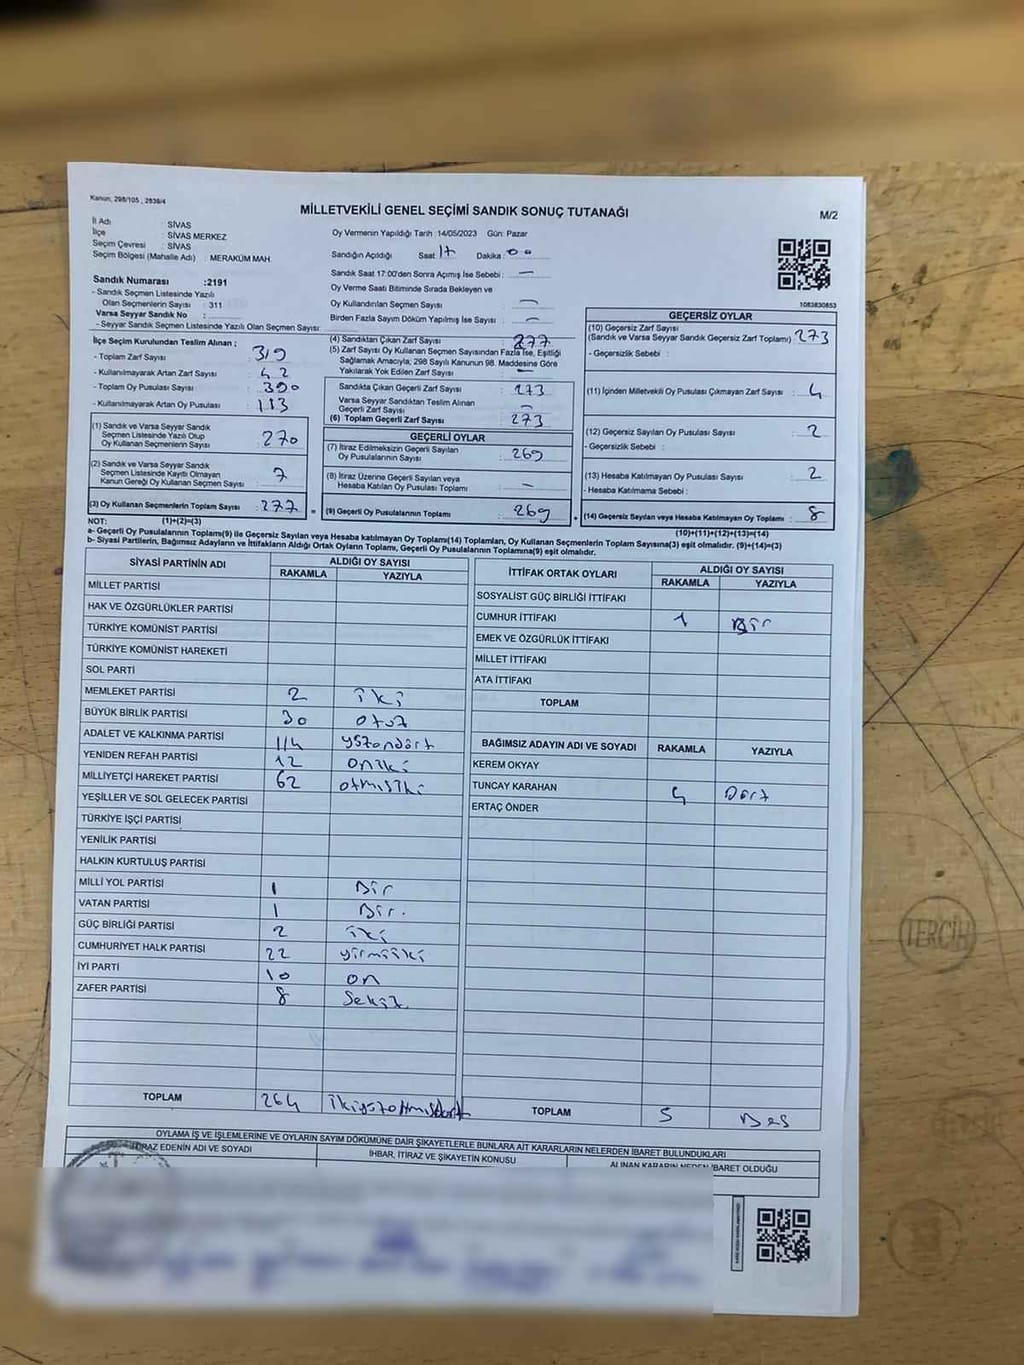 Kanun, 298/105 , 2839/4
MİLLETVEKİLİ GENEL SEÇİMİ SANDIK SONUÇ TUTANAĞI
M/2
İl Adı : SİVAS
İlçe : SİVAS MERKEZ
Seçim Çevresi : SİVAS
Seçim Bölgesi (Mahalle Adı) : MERAKÜM MAH.
Oy Vermenin Yapıldığı Tarih :14/05/2023 Gün: Pazar
Sandığın Açıldığı Saat 17 Dakika : 00
Sandık Saat 17:00'den Sonra Açımış İse Sebebi : —
Oy Verme Saati Bitiminde Sırada Bekleyen ve
Oy Kullandırılan Seçmen Sayısı : —
Birden Fazla Sayım Döküm Yapılmış İse Sayısı : —
1083830853
Sandık Numarası :2191
- Sandık Seçmen Listesinde Yazılı
Olan Seçmenlerin Sayısı : 311
Varsa Seyyar Sandık No :
- Seyyar Sandık Seçmen Listesinde Yazılı Olan Seçmen Sayısı:
İlçe Seçim Kurulundan Teslim Alınan ;
- Toplam Zarf Sayısı : 319
- Kullanılmayarak Artan Zarf Sayısı : 42
- Toplam Oy Pusulası Sayısı : 390
- Kullanılmayarak Artan Oy Pusulası : 113
(1) Sandık ve Varsa Seyyar Sandık
Seçmen Listesinde Yazılı Olup
Oy Kullanan Seçmenlerin Sayısı : 270
(2) Sandık ve Varsa Seyyar Sandık
Seçmen Listesinde Kayıtlı Olmayan
Kanun Gereği Oy Kullanan Seçmen Sayısı : 7
(3) Oy Kullanan Seçmenlerin Toplam Sayısı : 277 =
(4) Sandıktan Çıkan Zarf Sayısı : 277
(5) Zarf Sayısı Oy Kullanan Seçmen Sayısından Fazla İse, Eşitliği
Sağlamak Amacıyla; 298 Sayılı Kanunun 98. Maddesine Göre
Yakılarak Yok Edilen Zarf Sayısı : —
Sandıkta Çıkan Geçerli Zarf Sayısı : 273
Varsa Seyyar Sandıktan Teslim Alınan
Geçerli Zarf Sayısı : —
(6) Toplam Geçerli Zarf Sayısı : 273
GEÇERLİ OYLAR
(7) İtiraz Edilmeksizin Geçerli Sayılan
Oy Pusulalarının Sayısı : 269
(8) İtiraz Üzerine Geçerli Sayılan veya
Hesaba Katılan Oy Pusulası Toplamı : —
(9) Geçerli Oy Pusulalarının Toplamı : 269 +
GEÇERSİZ OYLAR
(10) Geçersiz Zarf Sayısı
(Sandık ve Varsa Seyyar Sandık Geçersiz Zarf Toplamı) : 273
- Geçersizlik Sebebi :
(11) İçinden Milletvekili Oy Pusulası Çıkmayan Zarf Sayısı : 4
(12) Geçersiz Sayılan Oy Pusulası Sayısı : 2
- Geçersizlik Sebebi :
(13) Hesaba Katılmayan Oy Pusulası Sayısı : 2
- Hesaba Katılmama Sebebi :
(14) Geçersiz Sayılan veya Hesaba Katılmayan Oy Toplamı : 8
NOT: (1)+(2)=(3)
(10)+(11)+(12)+(13)=(14)
a- Geçerli Oy Pusulalarının Toplamı(9) ile Geçersiz Sayılan veya Hesaba Katılmayan Oy Toplamı(14) Toplamları, Oy Kullanan Seçmenlerin Toplam Sayısına(3) eşit olmalıdır. (9)+(14)=(3)
b- Siyasi Partilerin, Bağımsız Adayların ve İttifakların Aldığı Ortak Oyların Toplamı, Geçerli Oy Pusulalarının Toplamına(9) eşit olmalıdır.
SİYASİ PARTİNİN ADI ALDIĞI OY SAYISI
RAKAMLA YAZIYLA
MİLLET PARTİSİ
HAK VE ÖZGÜRLÜKLER PARTİSİ
TÜRKİYE KOMÜNİST PARTİSİ
TÜRKİYE KOMÜNİST HAREKETİ
SOL PARTİ
MEMLEKET PARTİSİ 2 iki
BÜYÜK BİRLİK PARTİSİ 30 otuz
ADALET VE KALKINMA PARTİSİ 114 yüzondört
YENİDEN REFAH PARTİSİ 12 oniki
MİLLİYETÇİ HAREKET PARTİSİ 62 atmışiki
YEŞİLLER VE SOL GELECEK PARTİSİ
TÜRKİYE İŞÇİ PARTİSİ
YENİLİK PARTİSİ
HALKIN KURTULUŞ PARTİSİ
MİLLİ YOL PARTİSİ 1 Bir
VATAN PARTİSİ 1 Bir.
GÜÇ BİRLİĞİ PARTİSİ 2 iki
CUMHURİYET HALK PARTİSİ 22 yirmiiki
İYİ PARTİ 10 on
ZAFER PARTİSİ 8 Sekiz
TOPLAM 264 ikiyüzatmışdört
İTTİFAK ORTAK OYLARI ALDIĞI OY SAYISI
RAKAMLA YAZIYLA
SOSYALİST GÜÇ BİRLİĞİ İTTİFAKI
CUMHUR İTTİFAKI 1 Bir
EMEK VE ÖZGÜRLÜK İTTİFAKI
MİLLET İTTİFAKI
ATA İTTİFAKI
TOPLAM
BAĞIMSIZ ADAYIN ADI VE SOYADI RAKAMLA YAZIYLA
KEREM OKYAY
TUNCAY KARAHAN 4 Dört
ERTAÇ ÖNDER
TOPLAM 5 Beş
OYLAMA İŞ VE İŞLEMLERİNE VE OYLARIN SAYIM DÖKÜMÜNE DAİR ŞİKAYETLERLE BUNLARA AİT KARARLARIN NELERDEN İBARET BULUNDUKLARI
İTİRAZ EDENİN ADI VE SOYADI İHBAR, İTİRAZ VE ŞİKAYETİN KONUSU ALINAN KARARIN NEDEN İBARET OLDUĞU
TERCİH